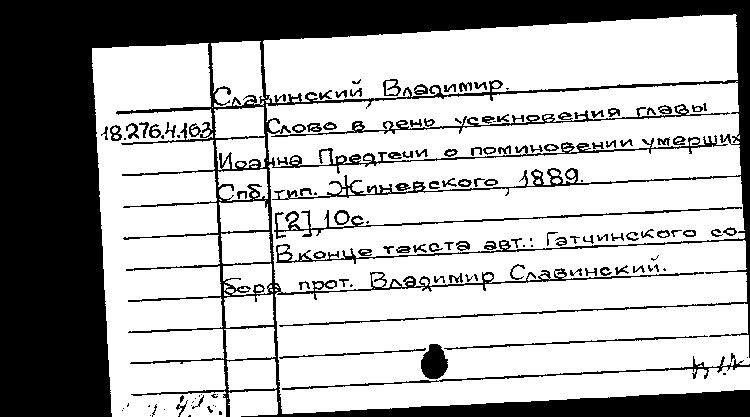 Славинский, Владимир.
18.276.4.163 Слово в день усекновения главы
Иоанна Предтечи о поминовении умерших
Спб, тип. Жиневского, 1889.
[2], 10с.
В конце текста авт.: Гатчинского со-
бора прот. Владимир Славинский.